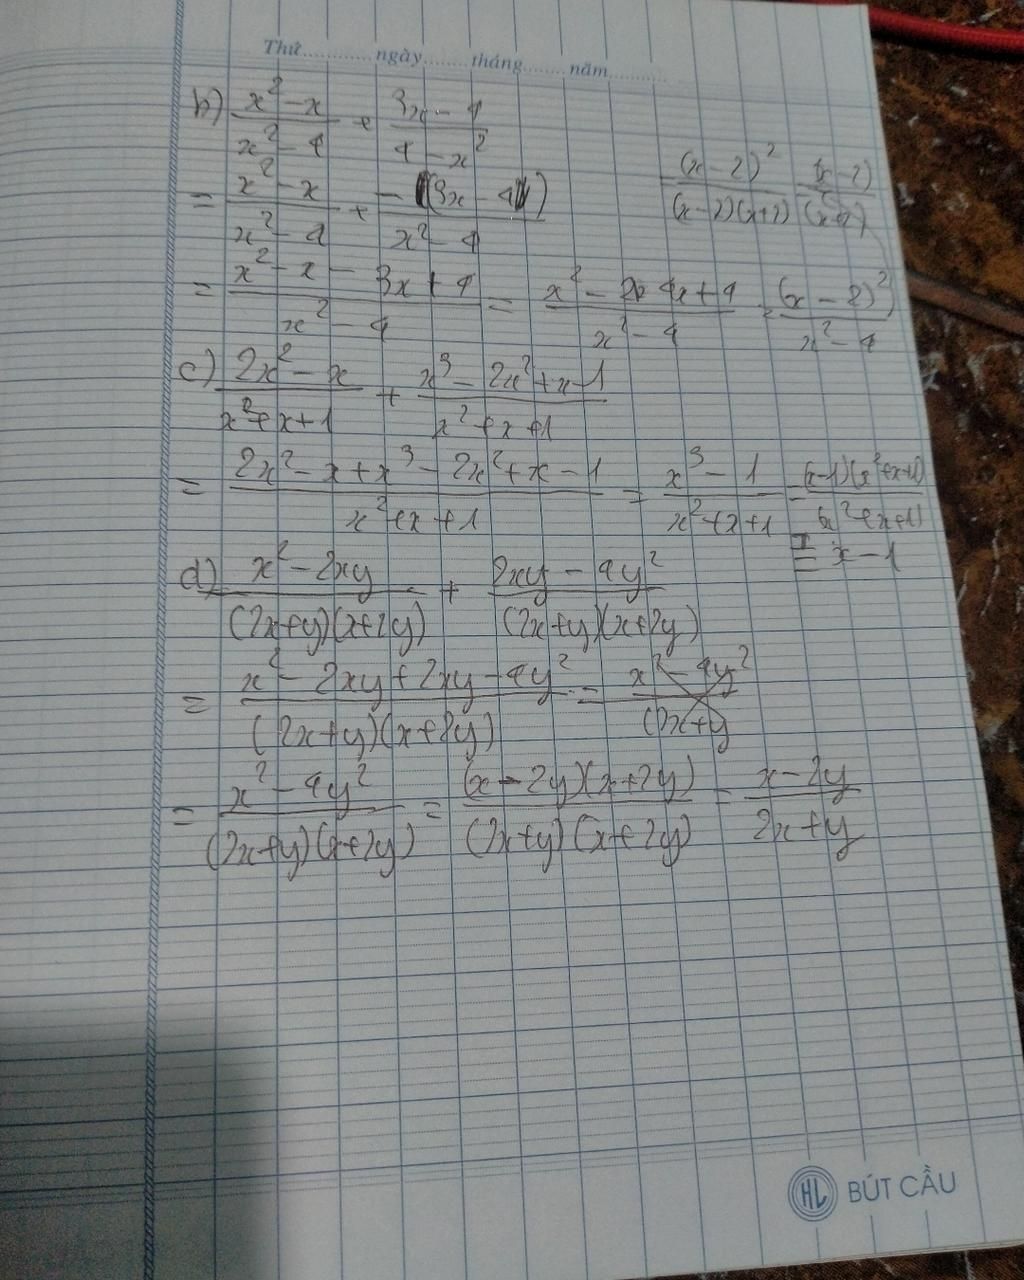 Thứ............ngày........tháng........năm...........
b) \frac{x^2-x}{x^2-4} + \frac{3x-4}{4-x^2}
= \frac{x^2-x}{x^2-4} + \frac{-(3x-4)}{x^2-4}
= \frac{x^2-x-3x+4}{x^2-4} = \frac{x^2-4x+4}{x^2-4} = \frac{(x-2)^2}{x^2-4}
= \frac{(x-2)^2}{(x-2)(x+2)} = \frac{(x-2)}{(x+2)}
c) \frac{2x^2-x}{x^2+x+1} + \frac{x^3-2x^2+x-1}{x^2+x+1}
= \frac{2x^2-x+x^3-2x^2+x-1}{x^2+x+1} = \frac{x^3-1}{x^2+x+1} = \frac{(x-1)(x^2+x+1)}{(x^2+x+1)}
= x-1
d) \frac{x^2-2xy}{(2x+y)(x+2y)} + \frac{2xy-4y^2}{(2x+y)(x+2y)}
= \frac{x^2-2xy+2xy-4y^2}{(2x+y)(x+2y)} = \frac{x^2-4y^2}{(2x+y}
= \frac{x^2-4y^2}{(2x+y)(x+2y)} = \frac{(x-2y)(x+2y)}{(2x+y)(x+2y)} = \frac{x-2y}{2x+y}
HL BÚT CẦU